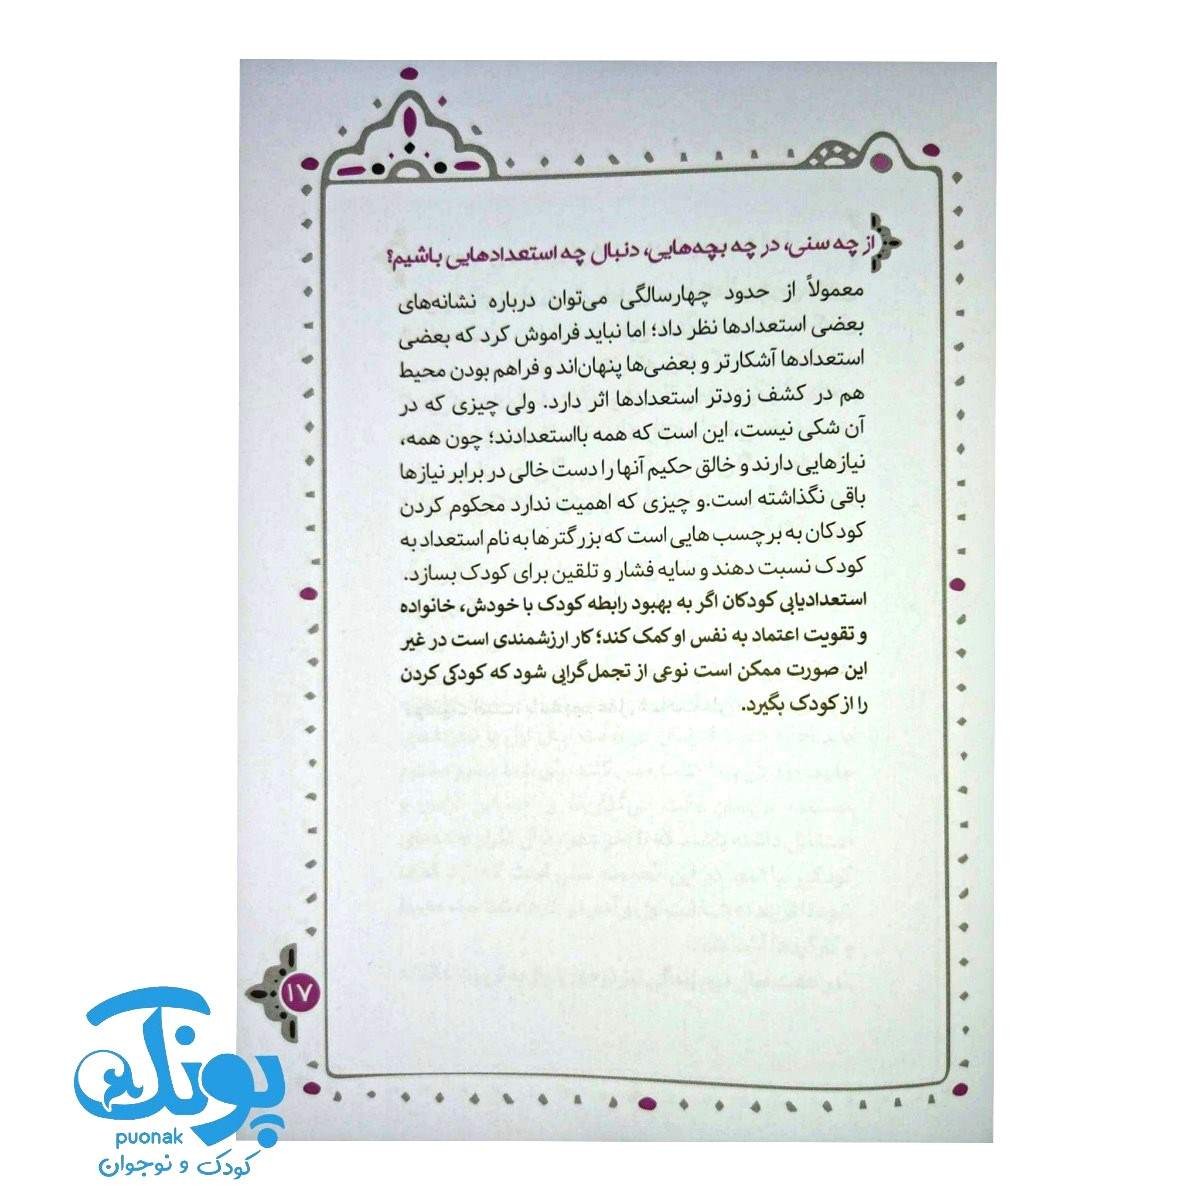 از چه سنی، در چه بچه‌هایی، دنبال چه استعدادهایی باشیم؟
معمولاً از حدود چهارسالگی می‌توان درباره نشانه‌های
بعضی استعدادها نظر داد؛ اما نباید فراموش کرد که بعضی
استعدادها آشکارتر و بعضی‌ها پنهان‌اند و فراهم بودن محیط
هم در کشف زودتر استعدادها اثر دارد. ولی چیزی که در
آن شکی نیست، این است که همه بااستعدادند؛ چون همه،
نیازهایی دارند و خالق حکیم آنها را دست خالی در برابر نیازها
باقی نگذاشته است.و چیزی که اهمیت ندارد محکوم کردن
کودکان به برچسب هایی است که بزرگترها به نام استعداد به
کودک نسبت دهند و سایه فشار و تلقین برای کودک بسازد.
استعدادیابی کودکان اگر به بهبود رابطه کودک با خودش، خانواده
و تقویت اعتماد به نفس او کمک کند؛ کار ارزشمندی است در غیر
این صورت ممکن است نوعی از تجمل‌گرایی شود که کودکی کردن
را از کودک بگیرد.
۱۷
پونک
puonak
کودک و نوجوان